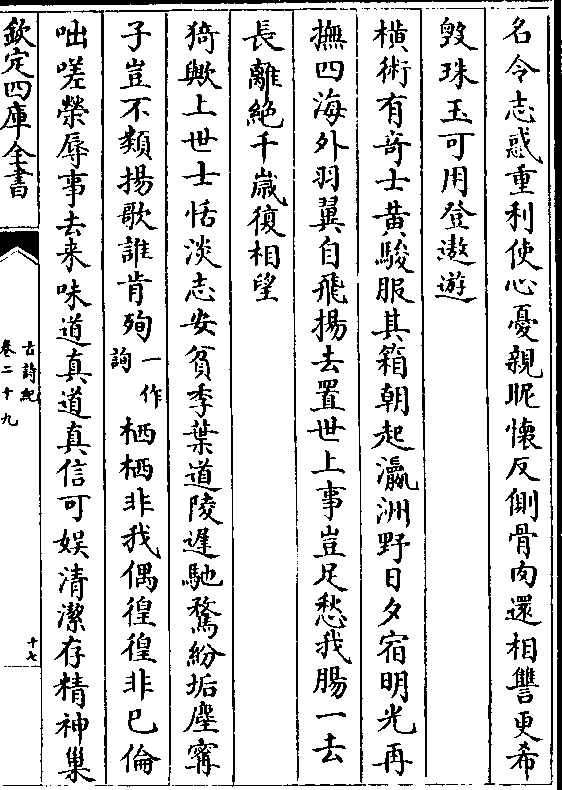 名令志惑重利使心憂親昵懷反側骨肉還相讐更希
毁珠玉可用登遨遊
橫術有奇士黄駿服其箱朝起瀛洲野日夕宿明光再
撫四海外羽翼自飛揚去置世上事豈足愁我腸一去
長離絶千嵗復相望
猗歟上世士恬淡志安貧季葉道陵遲馳騖紛垢塵甯
子豈不類揚歌誰肯殉一作詢栖栖非我偶徨徨非已倫
咄嗟榮辱事去来味道真道真信可娱清潔存精神巢
欽定四庫全書
古詩紀
卷二十九
十七